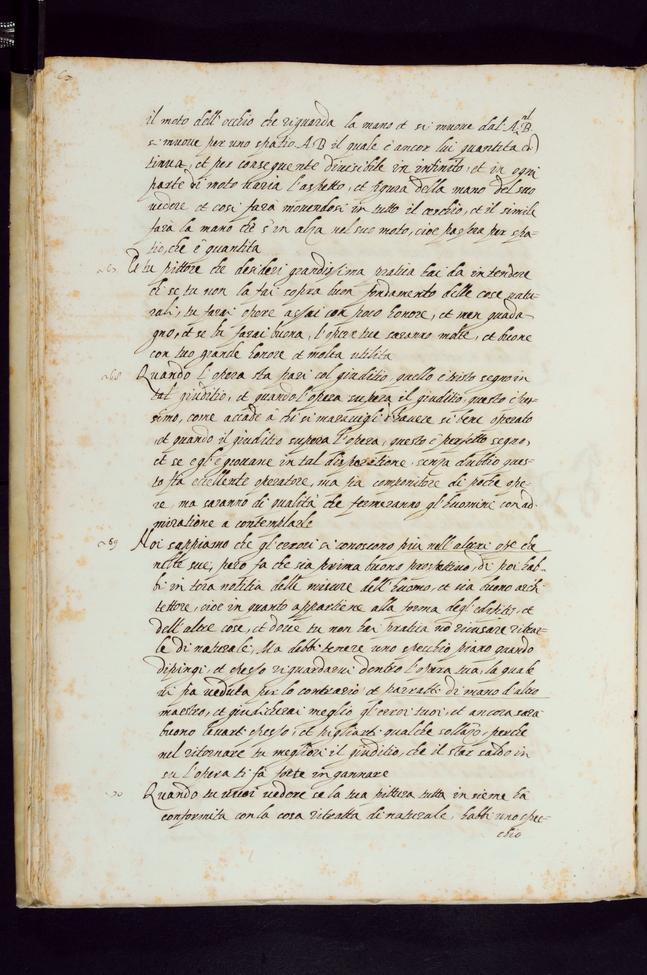 il moto dell'occhio che riguarda la mano et si muove dal A nel B
si muove per uno spatio AB il quale è ancor lui quantità con
tinua, et per conseguente divisibile in infinito, et in ogni
parte di moto varia l'aspetto, et figura della mano nel suo
vedere et cosi farà movendosi in tutto il cerchio, et il simile
farà la mano che s'in alza nel suo moto, cioe passera per spa-
tio, che è quantità
67 Se tu pittore che desideri grandissima pratica hai da intendere
ch se tu non la fai sopra buon fondamento delle cose natu-
rali, tu farai opere assai con poco honore, et men guada-
gno, et se la farai buona, l'opere tue saranno molte, et buone
con tuo grande honore et molta utilità
68 Quando l'opera sta pari col giuditio, quello è tristo segno in
tal giuditio, et quando l'opera supera il giuditio, questo è pes-
simo, come accade à chi si maraviglia d'havere si bene operato
et quando il giuditio supera l'opera, questo è perfetto segno,
et se egl'è giovane in tal dispositione, senza dubbio ques-
to fia eccellente operatore, ma fia componitore di poche ope-
re, ma saranno di qualità che fermeranno gl'huomini con ad
miratione a contemplarle
69 Noi sappiamo che gl'errori si conoscono più nell'altrui ope che
nelle sue, pero fa che sia prima buono prospettivo, di poi hab-
bi in tera notitia delle misure dell'huomo, et sia buono archi
tettore, cioe in quanto appartiene alla forma degl'edefitij, et
dell'altre cose, et dove tu non hai pratica no ricusare ritrar-
le di naturale, Ma debbi tenere uno specchio piano quando
dipingi, et spesso riguardarvi dentro l'opera tua, la quale
li fia veduta per lo contrario et parratti di mano d'altro
maestro, et giudicherai meglio gl'errori tuoi, et ancora sara
buono levarti spesso, et pigliarti qualche sollazo, perche
nel ritornare tu megliori il giuditio, che il star saldo in
su l'opera ti fà forte ingannare
70 Quando tu vuoi vedere se la tua pittura tutta in sieme hà
conformità con la cosa ritratta di naturale, habbi uno spec-
chio